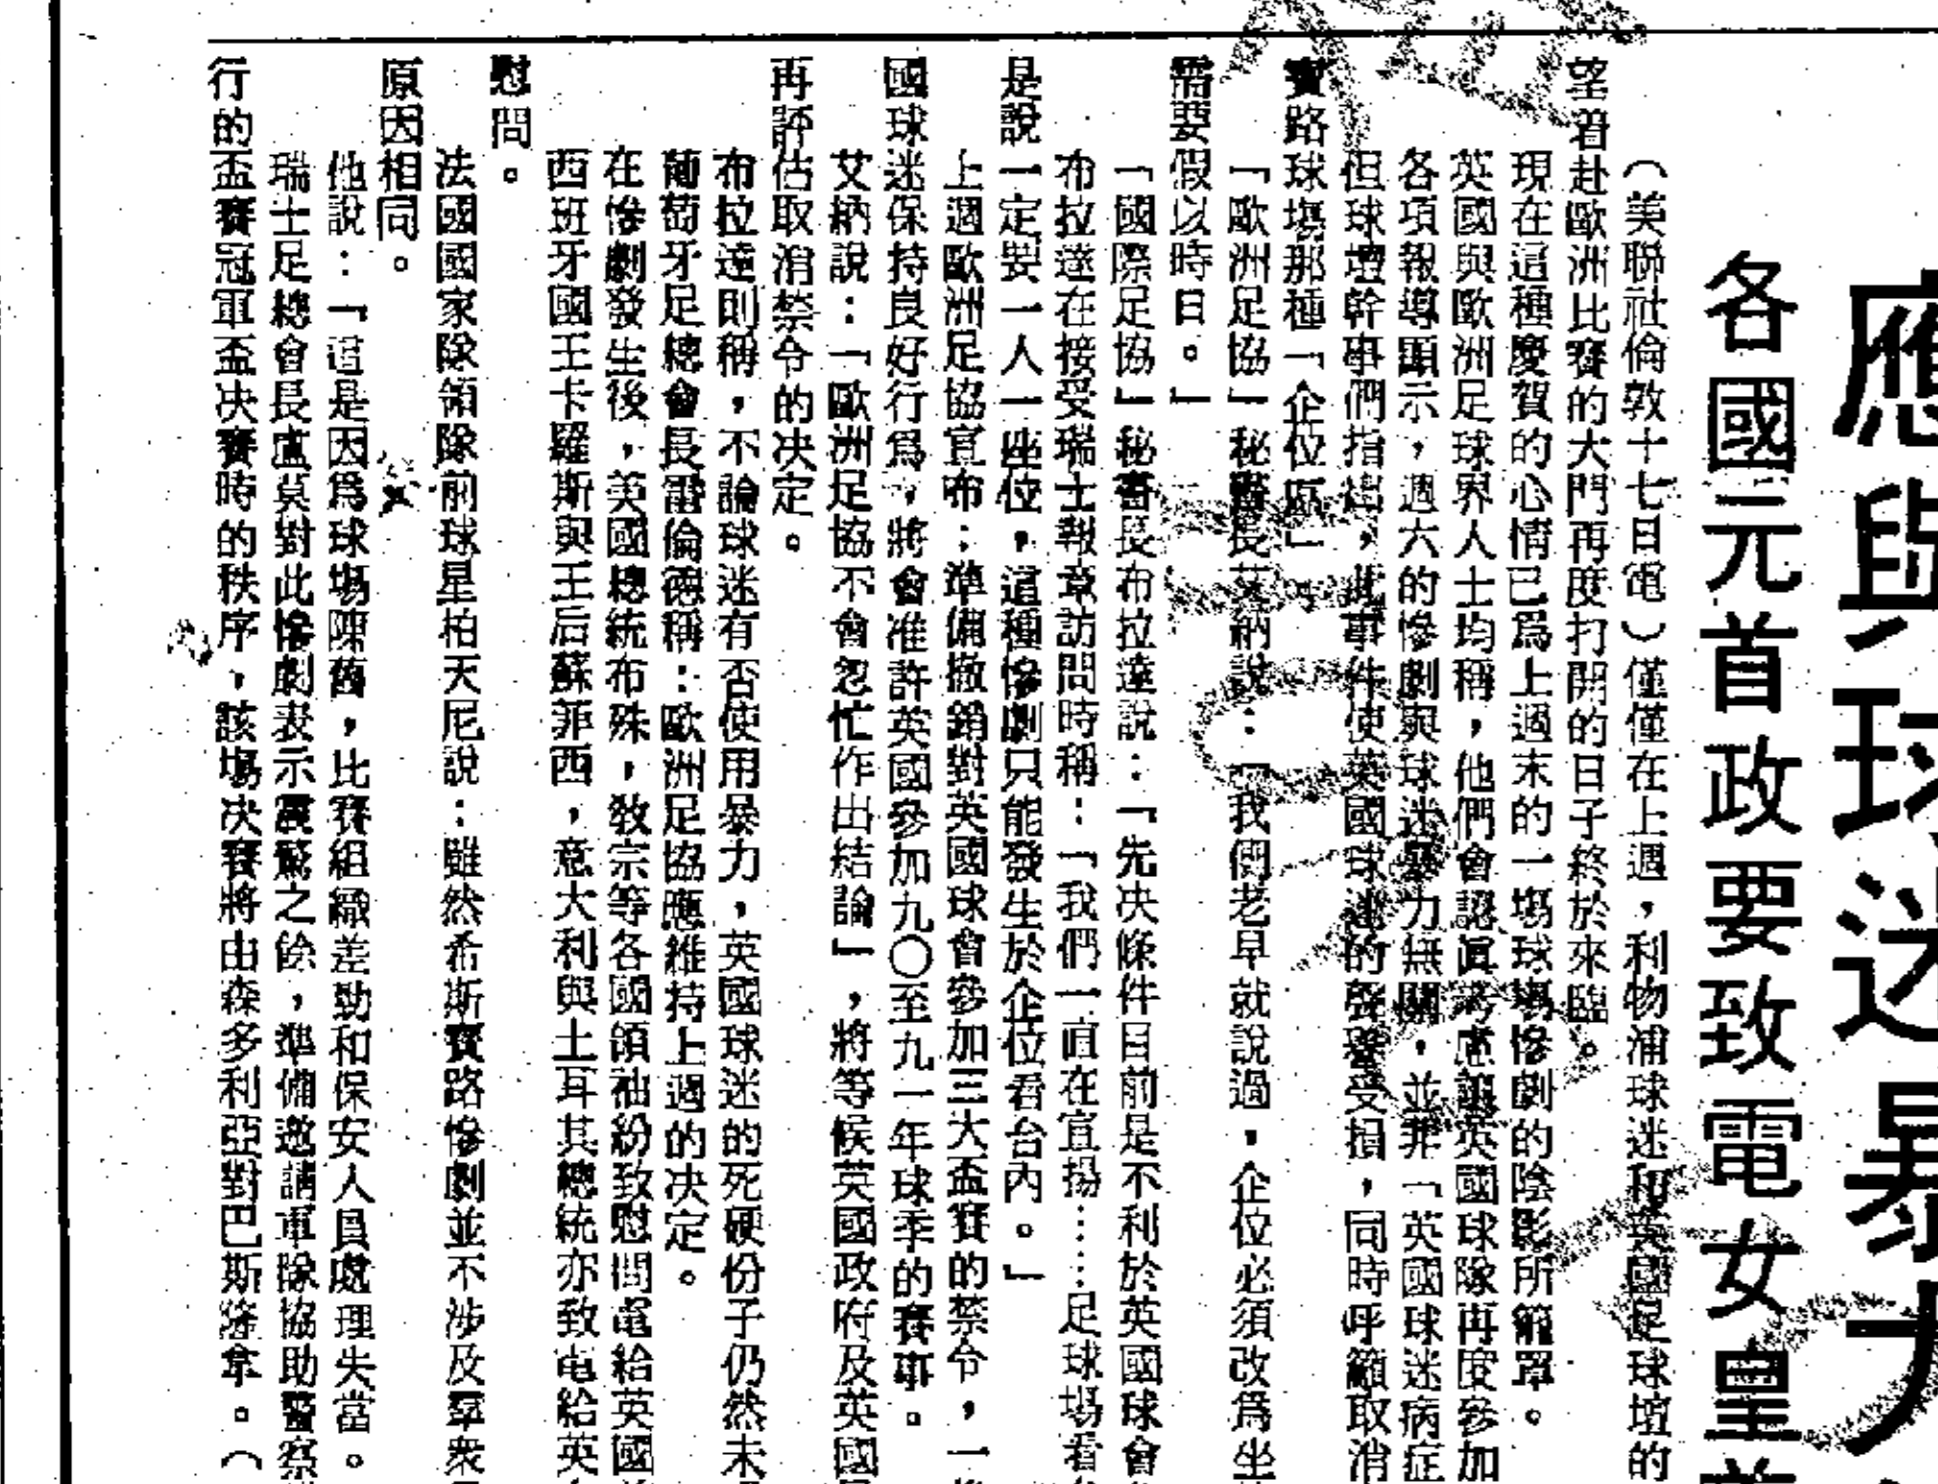 應與球迷暴力
各國元首政要致電女皇
（美聯社倫敦十七日電）僅僅在上週，利物浦球迷和英國足球壇的
望着赴歐洲比賽的大門再度打開的日子終於來臨。
現在這種慶賀的心情已爲上週末的一場球場慘劇的陰影所籠罩。
英國與歐洲足球界人士均稱，他們會認眞考慮讓英國球隊再度參加
各項報導顯示，週六的慘劇與球迷暴力無關，並非「英國球迷病症
但球壇幹事們指出，此事件使英國球迷的聲譽受損，同時呼籲取消
寶路球塲那種「企位區」
「歐洲足協」秘書長艾納說：「我們老早就說過，企位必須改爲坐
需要假以時日。」
「國際足協」秘書長布拉達說：「先决條件目前是不利於英國球會
布拉達在接受瑞士報章訪問時稱：「我們一直在宣揚……足球場看
是說一定要一人一座位，這種慘劇只能發生於企位看台內。」
上週歐洲足協宣布：準備撤銷對英國球會參加三大盃賽的禁令，一
國球迷保持良好行爲，將會准許英國參加九〇至九一年球季的賽事。
艾納說：「歐洲足協不會忽忙作出結論」，將等候英國政府及英國
再評估取消禁令的决定。
布拉達則稱，不論球迷有否使用暴力，英國球迷的死硬份子仍然未
葡萄牙足總會長雷倫德稱：歐洲足協應維持上週的决定。
在慘劇發生後，美國總統布殊，敎宗等各國領袖紛致慰問電給英國
西班牙國王卡羅斯與王后蘇菲西，意大利與土耳其總統亦致電給英
慰問。
法國國家隊領隊前球星柏天尼說：雖然希斯寶路慘劇並不涉及羣衆
原因相同。
他說：「這是因爲球塲陳舊，比賽組織差勁和保安人員處理失當。
瑞士足總會長盧莫對此慘劇表示震驚之餘，準備邀請軍隊協助警察
行的盃賽冠軍盃决賽時的秩序，該塲决賽將由森多利亞對巴斯隆拿。（